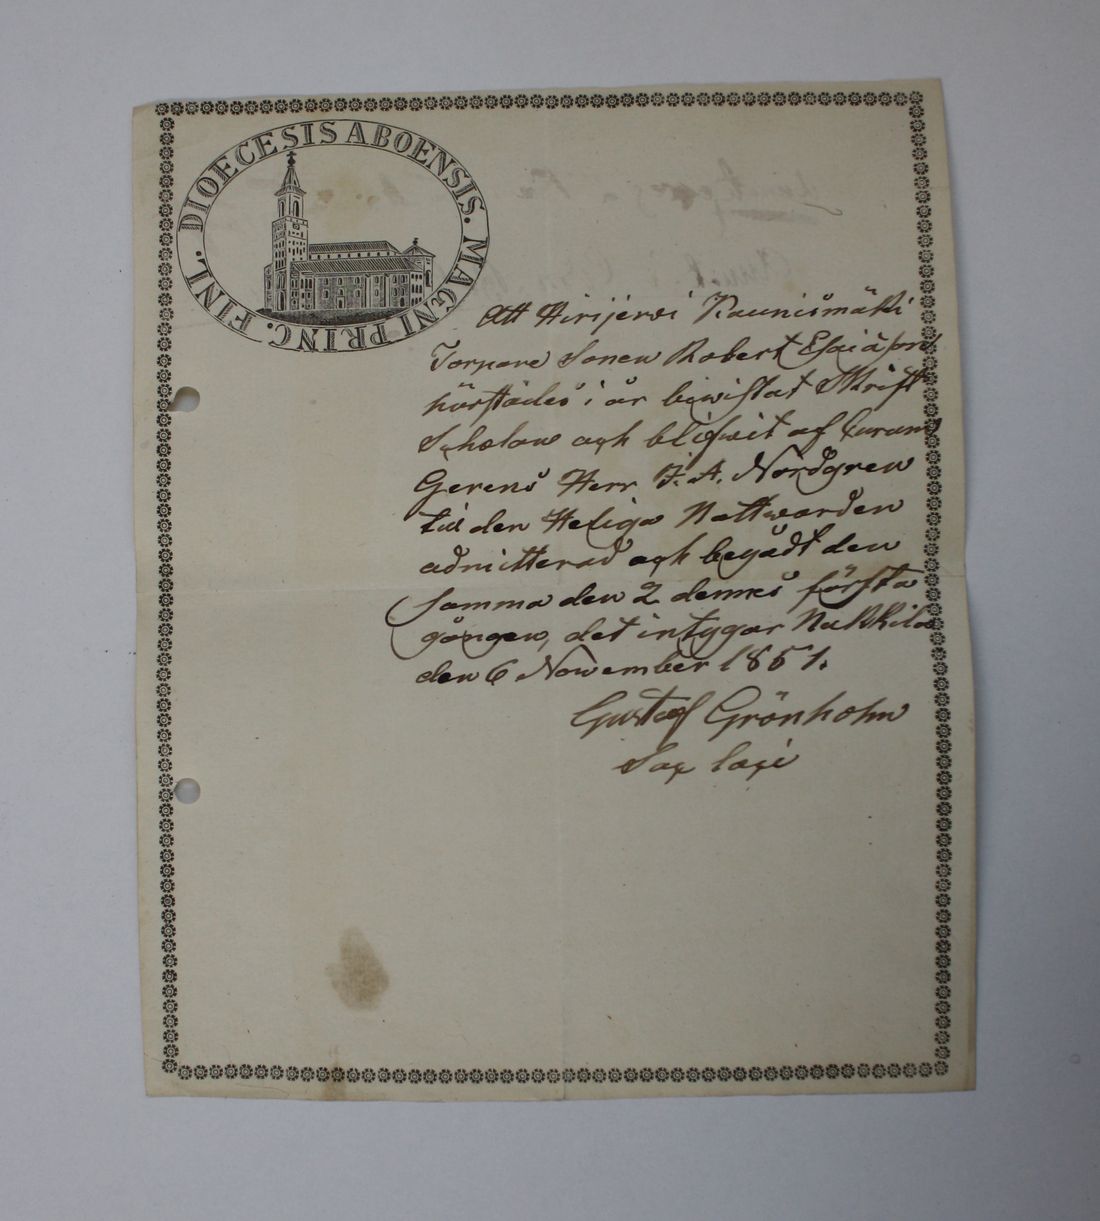 DIOECESIS ABOENSIS. MAGNI PRINC. FINL.
Att Hirijerwi Kaunismäki
Torpare Sonen Robert Esaiasson
härstädes i år bewistat Skrift
Scholan och blifwit af Curam
Gerens Herr F. A. Nordgren
till den Heliga Nattwarden
admitterad och begådt den
samma den 2 dennes första
gången, det intygar Nakkila
den 6 November 1851.
Gustaf Grönholm
Sac laci